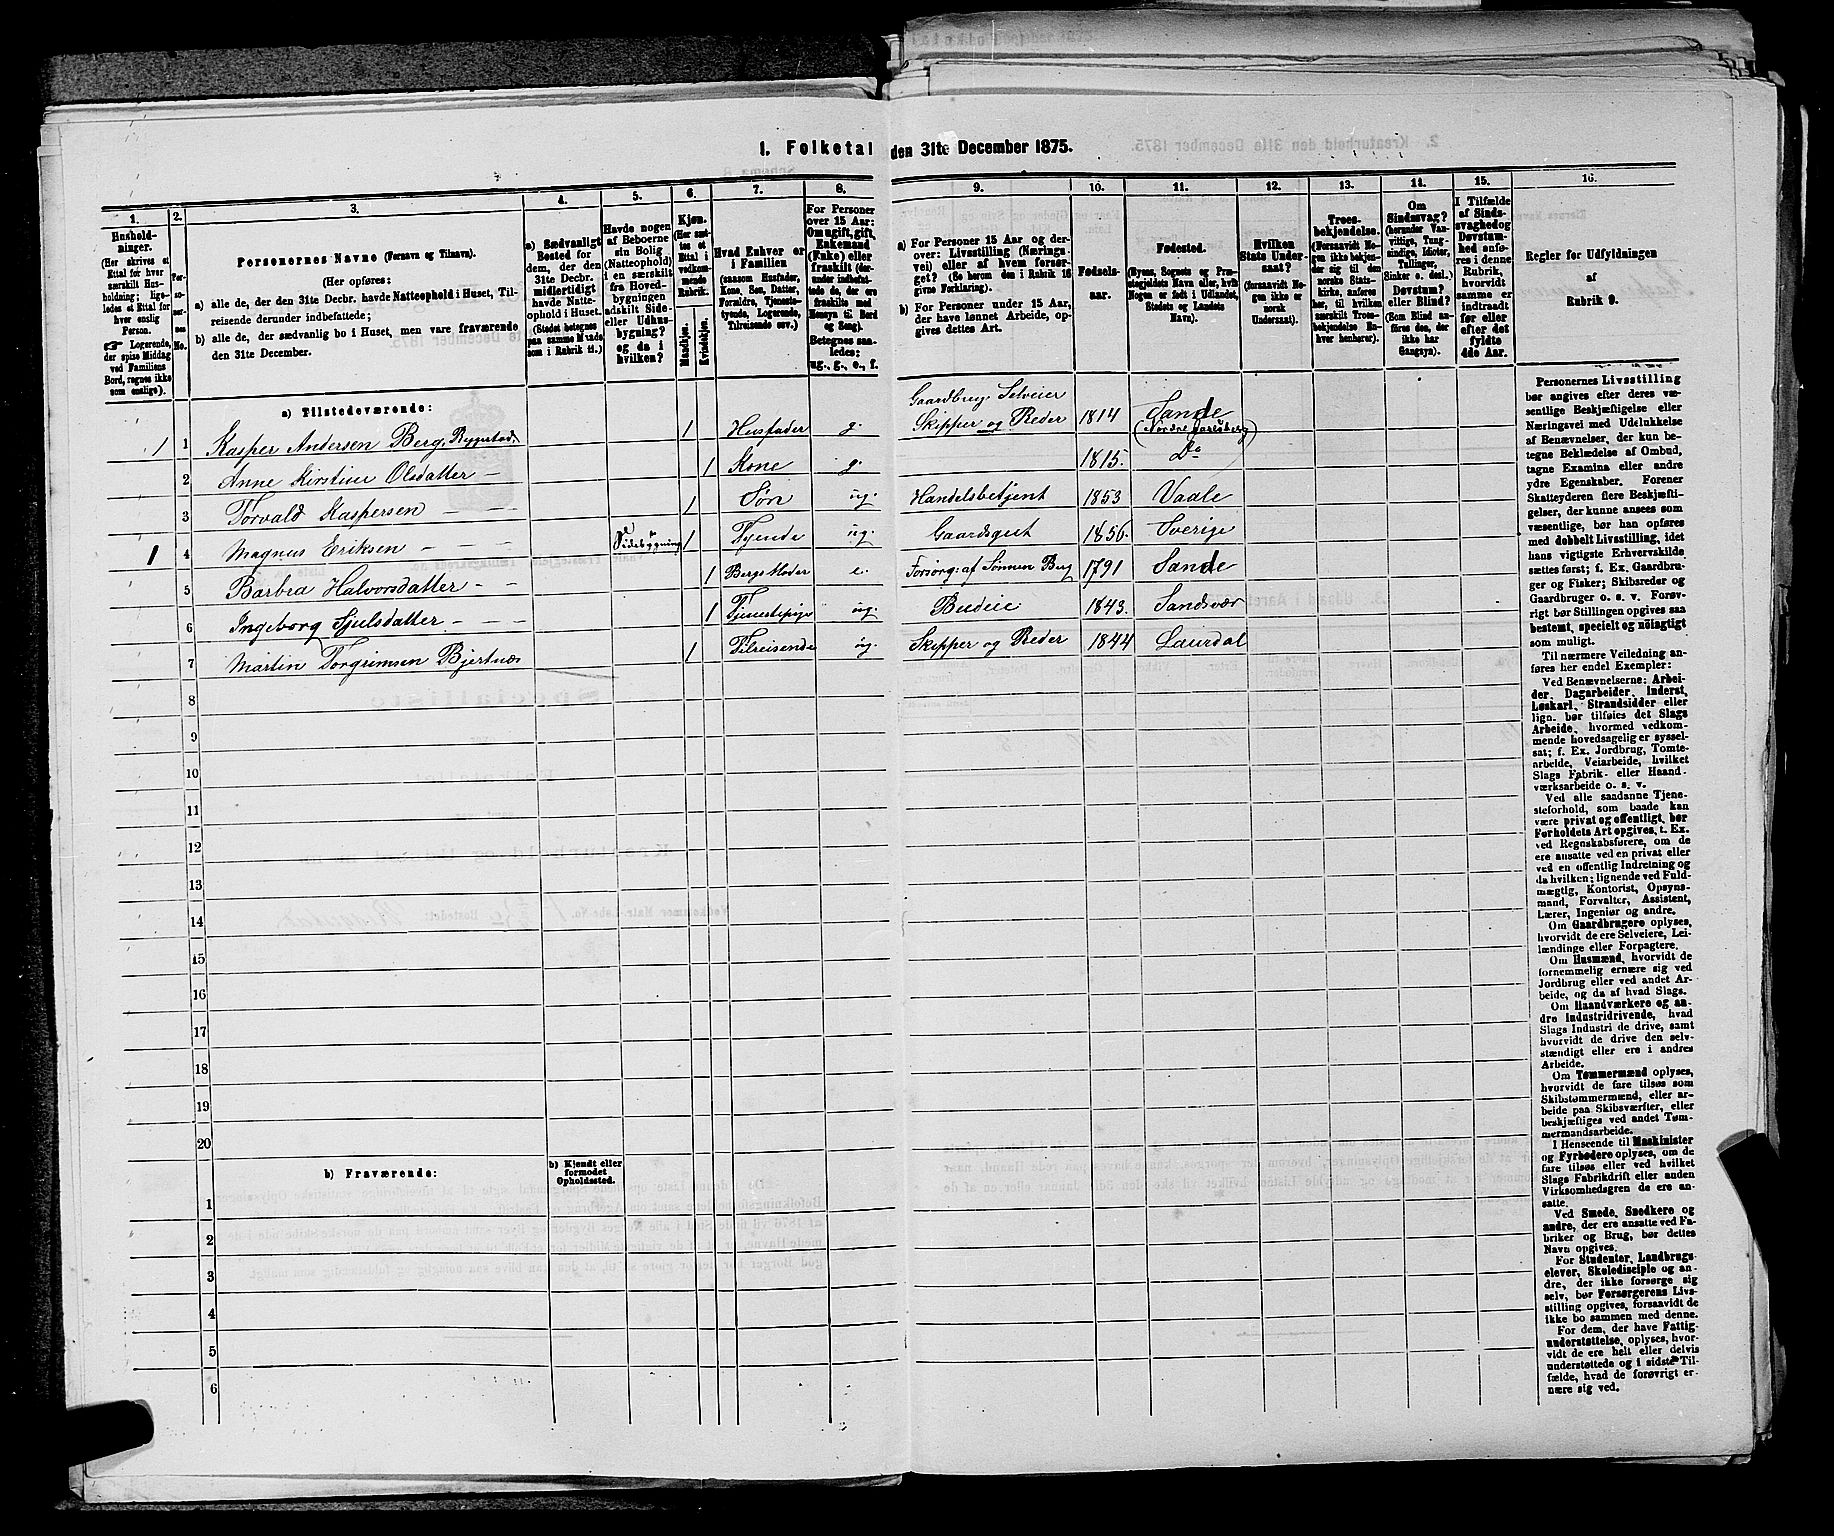 1. Folketal den 31te December 1875.
1.
Husholdninger.
(Her skrives et
Ettal for hver
særskilt Husholdning;
ligeledes et Ettal for
hver enslig
Person.
☞ Logerende,
der spise Middag
ved Familiens
Bord, regnes ikke
som enslige).
2.
Personernes No.
3.
Personernes Navne (Fornavn og Tilnavn).
(Her opføres:
a) alle de, der den 31te Decbr. havde Natteophold i Huset, Tilreisende derunder indbefattede;
b) alle de, der sædvanlig bo i Huset, men vare fraværende
den 31te December.
4.
a) Sædvanligt
Bosted for
dem, der den
31te Decbr.
midlertidigt
havde Natteophold i Huset.
(Stedet betegnes
paa samme Maade
som i Rubrik 11.)
5.
Havde nogen
af Beboerne
sin Bolig
(Natteophold)
i en særskilt
fra Hovedbygningen
adskilt Side-
eller Udhusbygning?
og da i
hvilken?
6.
Kjøn.
(Her sættes et
Ettal i
vedkommende
Rubrik.
Mandkjøn.
Kvindekjøn.
7.
Hvad Enhver er
i Familien
(saasom Husfader,
Kone, Søn, Datter,
Forældre, Tjenestetyende, Logerende,
Tilreisende osv.)
8.
For Personer
over 15 Aar:
Om ugift, gift,
Enkemand
(Enke) eller
fraskilt (derunder indbefattede de, der ere
fraskilte med
Hensyn til Bord
og Seng).
Betegnes saaledes:
ug., g., e., f.
9.
a) For Personer 15 Aar og derover: Livsstilling (Næringsvei) eller af hvem forsørget? (Se herom den i Rubrik 16
givne Forklaring).
b) For Personer under 15 Aar,
der have lønnet Arbeide, opgives dettes Art.
10.
Fødselsaar.
11.
Fødested.
(Byens, Sognets og Præstegjeldets Navn eller, hvis
Nogen er født i Udlandet,
Stedets og Landets
Navn).
12.
Hvilken
Stats Undersaat?
(forsaavidt Nogen ikke er
norsk
Undersaat).
13.
Troesbekjendelse.
(Forsaavidt Nogen ikke bekjender sig til den
norske Statskirke, anføres her, til hvilken
særskilt Troesbekjendelse Enhver henhører).
14.
Om
Sindssvag?
(herunder Vanvittige, Tungsindige, Idioter,
Tullinger,
Sinker o. desl.)
Døvstum?
eller Blind?
(Som Blind anføres den, der
ikke har
Gangsyn).
15.
I Tilfælde
af Sindssvaghed og
Døvstumhed anføres i denne
Rubrik,
hvorvidt
samme er
indtraadt
før eller
efter det
fyldte
4de Aar.
16.
Regler for Udfyldningen
af
Rubrik 9.
a) Tilstedeværende:
1 1 Kasper Andersen Berg, Ryggstad 1 Husfader g. Gaardbrug. Selveier Skipper og Reder 1814 Sande (Nordre Jarlsberg)
2 Anne Kirstine Olsdatter — 1 Kone g. 1815. Do
3 Torvald Kaspersen — — 1 Søn ug. Handelsbetjent 1853 Vaale
1 4 Magnus Eriksen — — — Sidebygning 1 Tyende ug. Gaardsgut 1856. Sverige
5 Barbra Halvorsdatter — — 1 Bergs Moder e. Forsørg: af Sønnen Berg 1791 Sande
6 Ingeborg Sjulsdatter — — — 1 Tjenestepige ug. Budeie 1843. Sandsvær
7 Martin Torgrimsen Bjertnæs 1 Tilreisende ug. Skipper og Reder 1844 Laurdal
8
9
10
11
12
13
14
15
16
17
18
19
20
b) Fraværende:
b) Kjendt eller
formodet
Opholdssted.
1
2
3
4
5
6
Personernes Livsstilling
bør angives efter deres væsentlige Beskjæftigelse eller
Næringsvei med Udelukkelse
af Benævnelser, der kun betegne Beklædelse af Ombud,
tagne Examina eller andre
ydre Egenskaber. Forener
Skatteyderen flere Beskjæftigelser, der kunne ansees som
væsentlige, bør han opføres
med dobbelt Livsstilling, idet
hans vigtigste Erhvervskilde
sættes først; f. Ex. Gaardbruger og Fisker; Skibsreder og
Gaardbruger o. s. v. Forøvrigt bør Stillingen opgives saa
bestemt, specielt og nöiagtigt
som muligt.
Til nærmere Veiledning anføres her endel Exempler:
Ved Benævnelserne: Arbeider, Dagarbeider, Inderst,
Løskarl, Strandsidder eller
lign. bør tilføies det Slags
Arbeide, hvormed vedkommende hovedsagelig er sysselsat; f. Ex. Jordbrug, Tomtearbeide, Veiarbeide, hvilket
Slags Fabrik- eller Haandværksarbeide o. s. v.
Ved alle saadanne Tjenesteforhold, som baade kan
være privat og offentligt, bør
Forholdets Art opgives, t. Ex.
ved Regnskabsførere, om de
ere ansatte ved en privat eller
ved en offentlig Indretning og
da hvilken; lignende ved Fuldmægtig, Kontorist, Opsynsmand, Forvalter, Assistent,
Lærer, Ingeniør og andre.
Om Gaardbrugere oplyses,
hvorvidt de ere Selveiere, Leilændinge eller Forpagtere.
Om Husmænd, hvorvidt de
fornemmelig ernære sig ved
Jordbrug eller ved andet Arbeide, og da af hvad Slags.
Om Haandværkere og andre Industridrivende, hvad
Slags Industri de drive, samt
hvorvidt de drive den selvstændigt eller ere i andres
Arbeide.
Om Tømmermænd oplyses,
hvorvidt de fare tilsøs som
Skibstømmermænd, eller arbeide paa Skibsværfter, eller
beskjæftiges ved andet Tømmermandsarbeide.
I Henseende til Maskinister
og Fyrbødere oplyses, om de
fare tilsøs eller ved hvilket
Slags Fabrikdrift eller anden
Virksomhedsgren de ere ansatte.
Ved Smede, Snedkere og
andre, der ere ansatte ved Fabriker og Brug, bør dettes
Navn opgives.
For Studenter, Landbrugselever, Skoledisciple og andre, der ikke forsørge sig
selv, bør Forsørgerens Livsstilling opgives, forsaavidt de
ikke bo sammen med denne.
For dem, der have Fattigunderstøttelse, oplyses, hvorvidt de ere helt eller delvis
understøttede og i sidste Tilfælde, hvad de forøvrigt ernære sig ved.